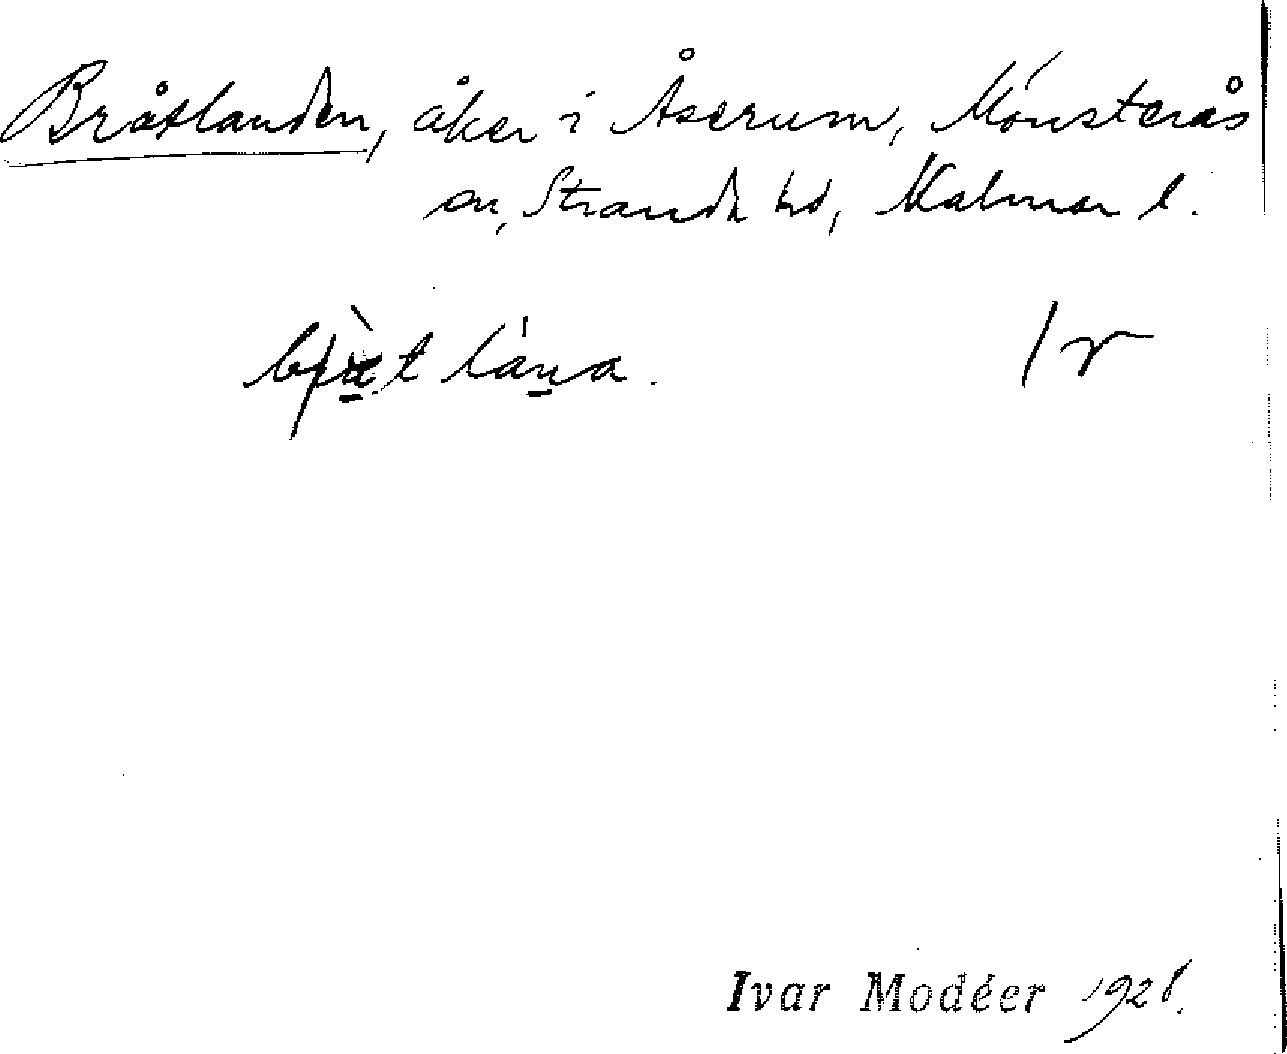 Bråtlanden, åker i Åserum, Mönsterås
sn, Stranda hd, Kalmar l.
Ivar Modéer 1928.